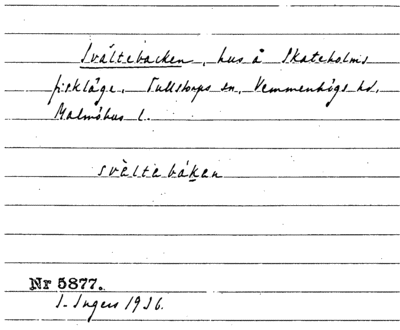 Svältebacken, hus å Skateholms
fiskläge, Tullstorps sn, Vemmenhögs hd,
Malmöhus l.
svàltabákan
Nr 5877.
I. Ingers 1936.